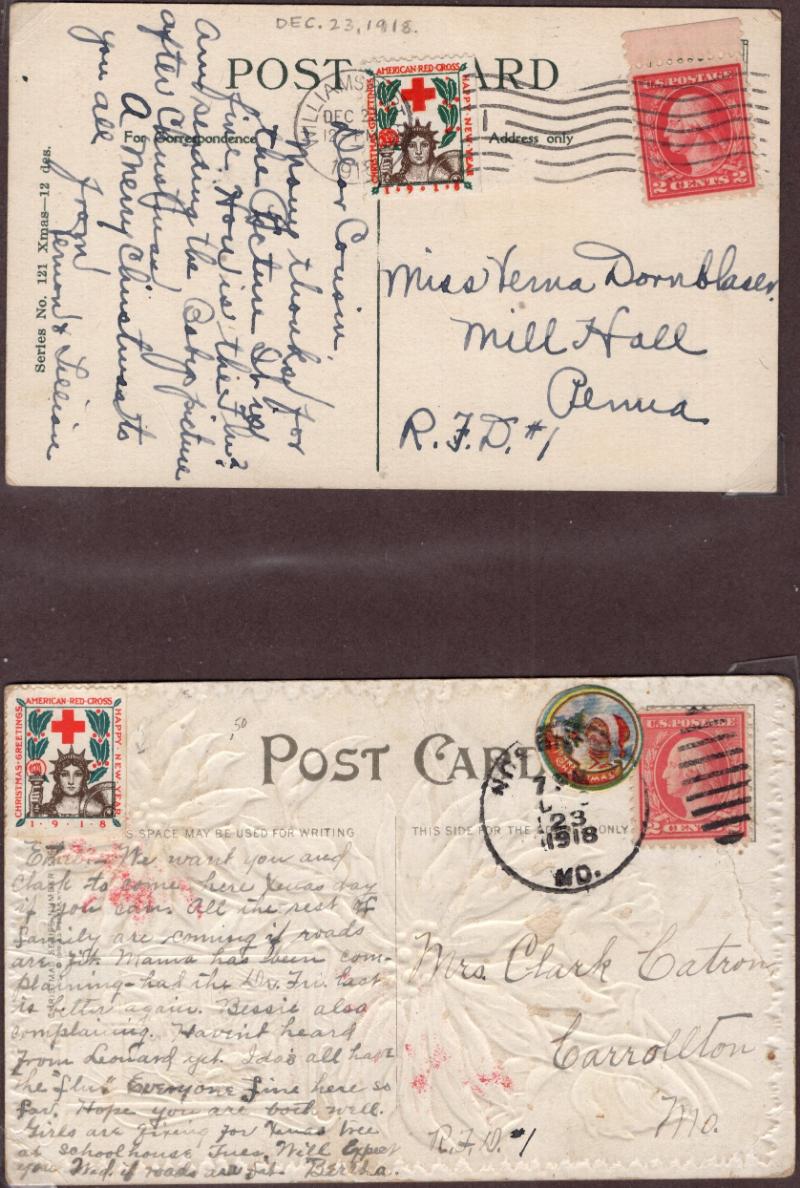 DEC. 23, 1918.
POST CARD
For Correspondence
Address only
WILLIAMS
DEC 2
12
1918
AMERICAN·RED·CROSS
CHRISTMAS·GREETINGS
HAPPY·NEW·YEAR
1·9·1·8
U.S. POSTAGE
2 CENTS 2
Series No. 121 Xmas—12 des.
Dear Cousin,
Many thanks for
the Picture. It is
fine. How is the Flu?
Am sending the Baby's picture
after Christmas.
A Merry Christmas to
you all
from
Vernon & Lillian
Miss Verna Dornblaser,
Mill Hall
Penna
R.F.D. #1
AMERICAN·RED·CROSS
CHRISTMAS·GREETINGS
HAPPY·NEW·YEAR
1·9·1·8
.50
POST CARD
S SPACE MAY BE USED FOR WRITING
THIS SIDE FOR THE ONLY
NOR
7
23
1918
MO.
U.S. POSTAGE
2 CENTS
We want you and
Clark to come here Xmas day
if you can. All the rest of
family are coming if roads
are fit. Mama has been com-
plaining-had the Dr. Fri. last
is better again. Bessie also
complaining. Havn't heard
from Leonard yet. Ida's all have
the "flu" Everyone fine here so
far. Hope you are both well.
Girls are fixing for Xmas tree
at schoolhouse Tues. Will Expect
you Wed. if roads are fit. Bertha.
Mrs. Clark Catron,
Carrollton
Mo.
R.F.D. #1